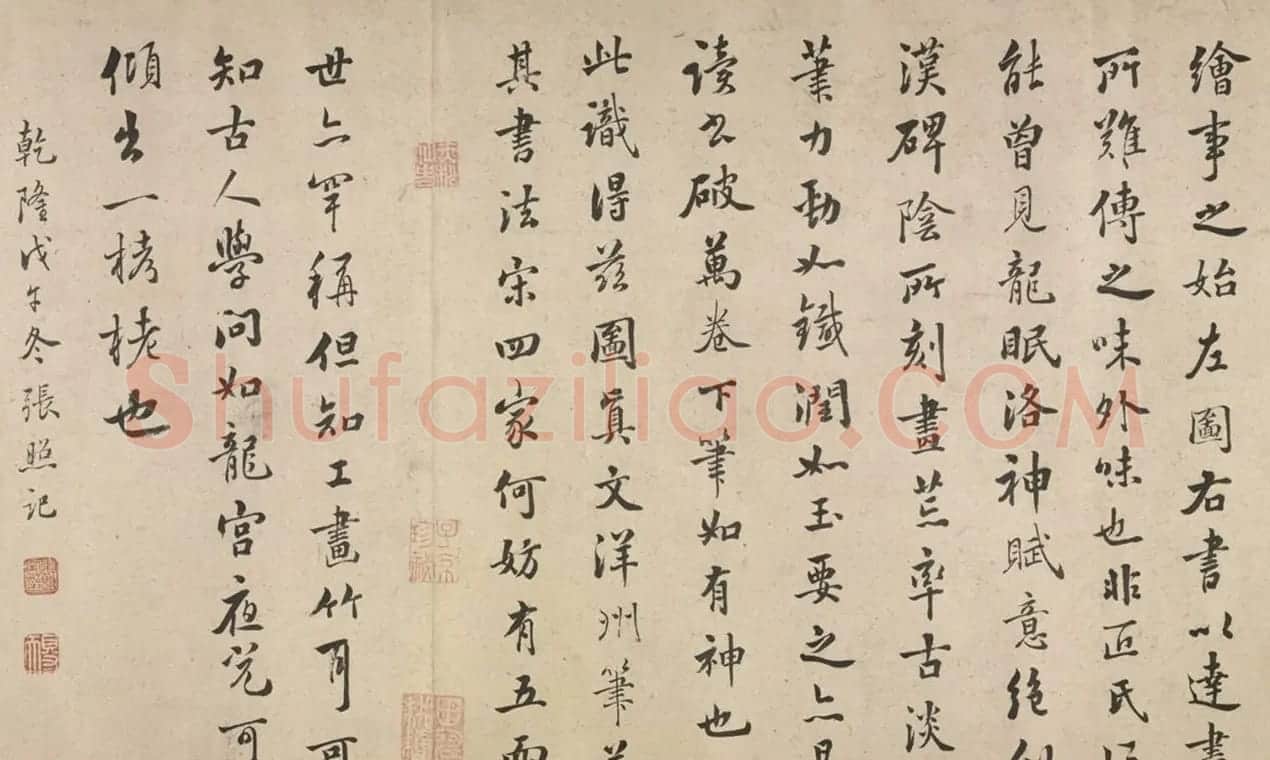 繪事之始左圖右書以達書
所難傳之味外味也非匠氏
能曾見龍眠洛神賦意絕
漢碑陰所刻畫荒率古淡
筆力勁如鐵潤如玉要之亦
讀書破萬卷下筆如有神也
此識得茲圖真文洋州筆
其書法宋四家何妨有五而
世亦罕稱但知工畫竹耳可
知古人學問如龍宮夜
傾出一栲栳也
乾隆戊午冬張照記
Shufaziliao.COM